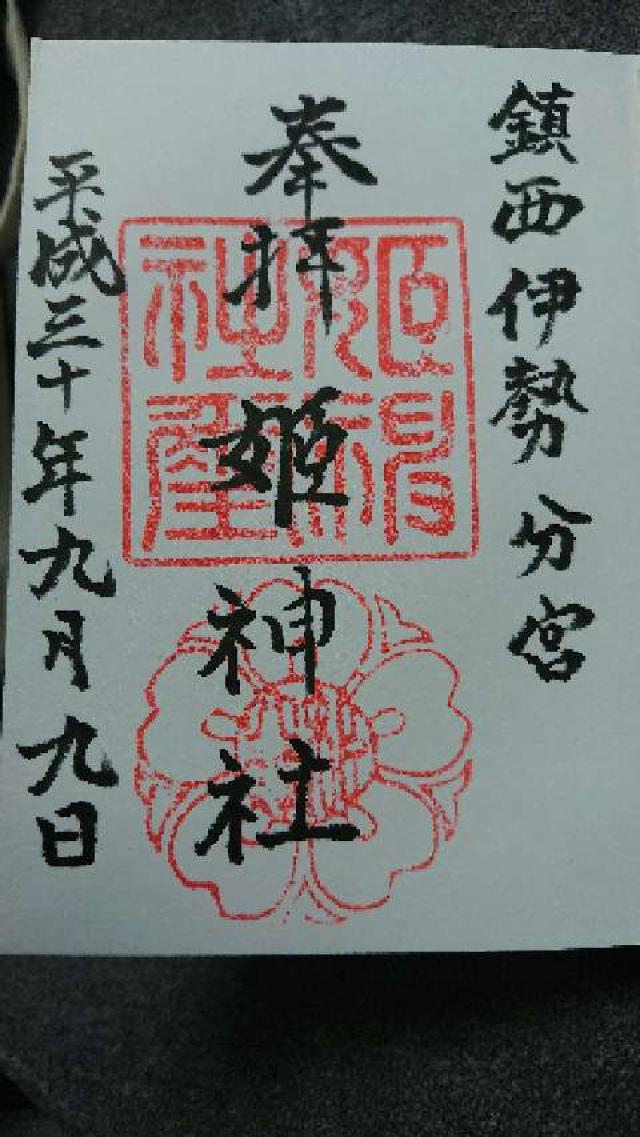 鎮西伊勢分宮
奉拝
姫神社
平成三十年九月九日